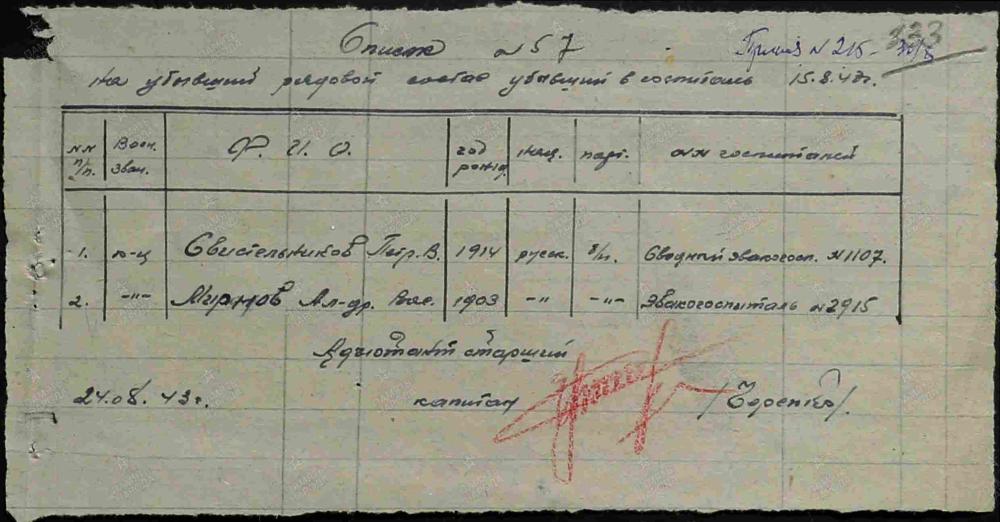 Список №57
на убывший рядовой состав убывший в госпиталь 15.8.43г.
№№ п/п. Воен. Зван. Ф. И. О. год рожд. нац. парт. №№ госпиталей
1. к-ц Свистельников Петр. В. 1914 русск. б/п. Сводный эвакогосп. №1107.
2. -"- Миронов Ал-др. Вас. 1903 -"- -"- Эвакогоспиталь №2915
Адъютант старший
24.08.43г. капитан